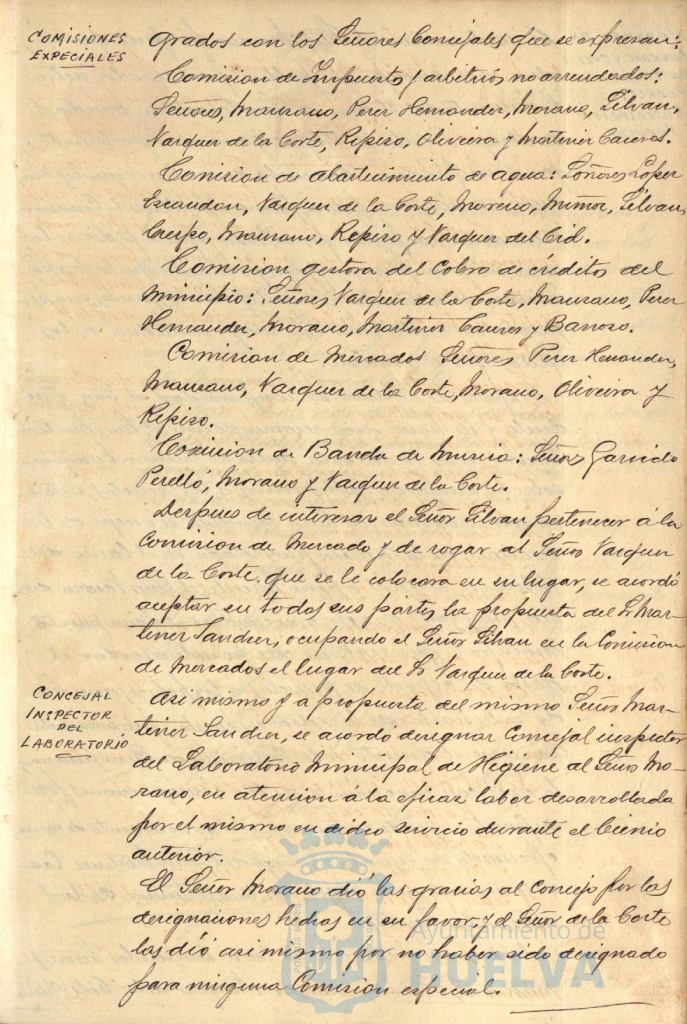 COMISIONES
EXPECIALES
grados con los Señores Concejales que se expresan:
Comision de Impuesto y arbitrios no arrendados:
Señores, Manzano, Perez Hernandez, Morano, Silvan,
Vazquez de la Corte, Repiso, Oliveira y Martinez Caceres.
Comision de abastecimiento de agua: Señores Lopez
Escandon, Vazquez de la Corte, Moreno, Muñoz, Silvan,
Crespo, Manzano, Repiso y Vazquez del Cid.
Comision gestora del cobro de creditos del
Municipio: Señores Vazquez de la Corte, Manzano, Perez
Hernandez, Morano, Martinez Caceres y Barroso.
Comision de Mercados Señores Perez Hernandez,
Manzano, Vazquez de la Corte, Morano, Oliveira y
Repiso.
Comision de Banda de musica: Señores Garrido
Perelló, Morano y Vazquez de la Corte.
Despues de interesar el Señor Silvan pertenecer á la
Comision de Mercado y de rogar al Señor Vazquez
de la Corte, que se le colocara en su lugar, se acordó
aceptar en todas sus partes la propuesta del Sr Mar-
tinez Sanchez, ocupando el Señor Silvan en la Comision
de Mercados el lugar del Sr Vazquez de la Corte.
CONCEJAL
INSPECTOR
DEL
LABORATORIO
Asi mismo y a propuesta del mismo Señor Mar-
tinez Sanchez, se acordó designar Concejal inspector
del Laboratorio Municipal de Higiene al Señor Mo-
rano, en atencion á la eficaz labor desarrollada
por el mismo en dicho servicio durante el bienio
anterior.
El Señor Morano dió las gracias al Concejo por las
designaciones hechas en su favor, y el Señor de la Corte
las dió asi mismo por no haber sido designado
para ninguna Comision especial.
Ayuntamiento de
HUELVA